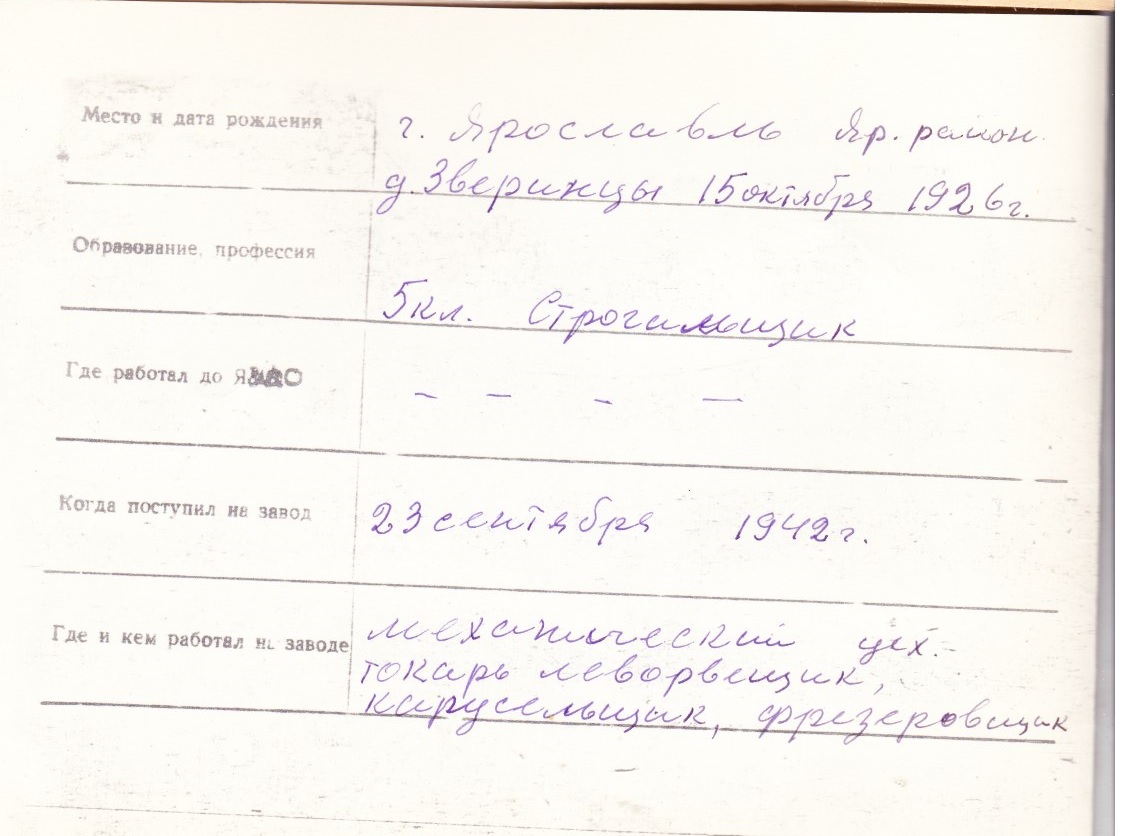 Место и дата рождения
г. Ярославль Яр. район.
д. Зверинцы 15 октября 1926 г.
Образование, профессия
5 кл. Строгальщик
Где работал до
- - - —
Когда поступил на завод
23 сентября 1942 г.
Где и кем работал на заводе
механический цех.-
токарь,
карусельщик, фрезеровщик